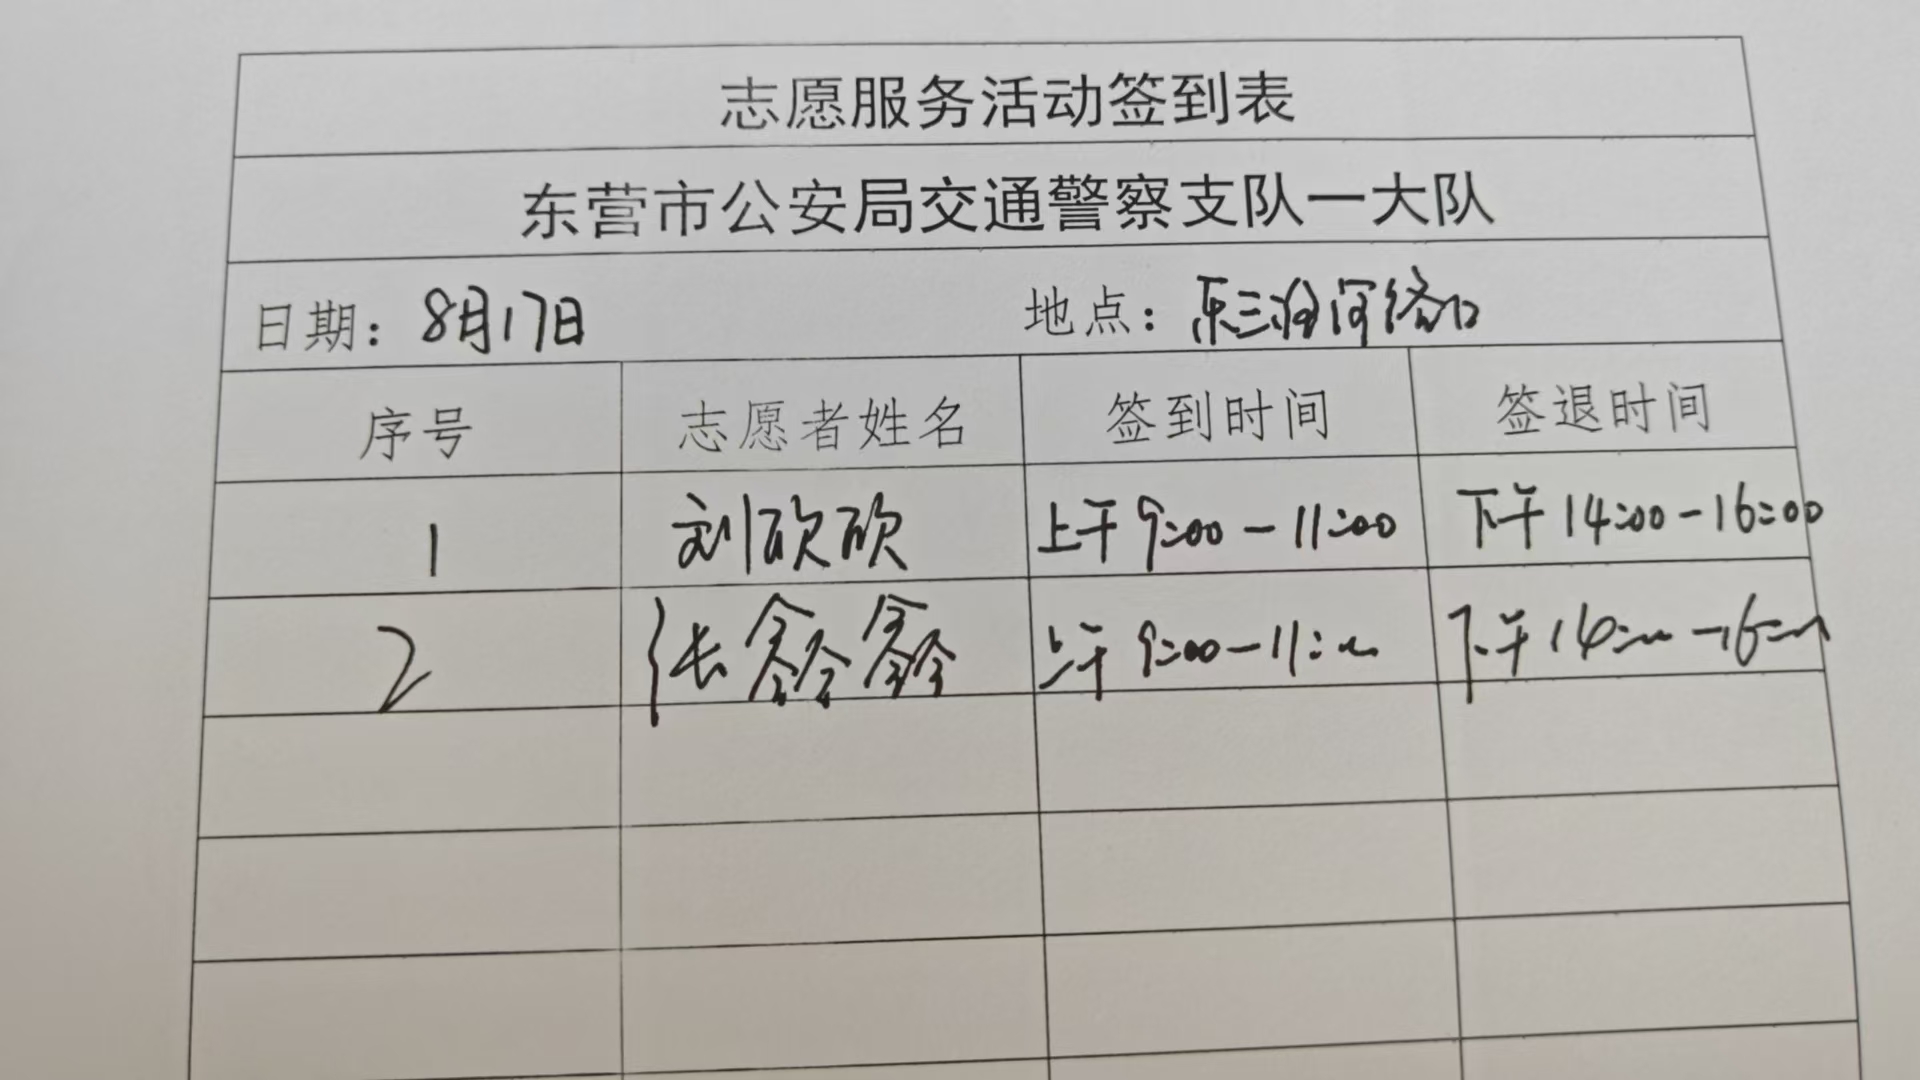 志愿服务活动签到表
东营市公安局交通警察支队一大队
日期：8月17日 地点：东三路河路口
序号 志愿者姓名 签到时间 签退时间
1 刘欣欣 上午9:00-11:00 下午14:00-16:00
2 张鑫鑫 上午9:00-11:00 下午14:00-16:00